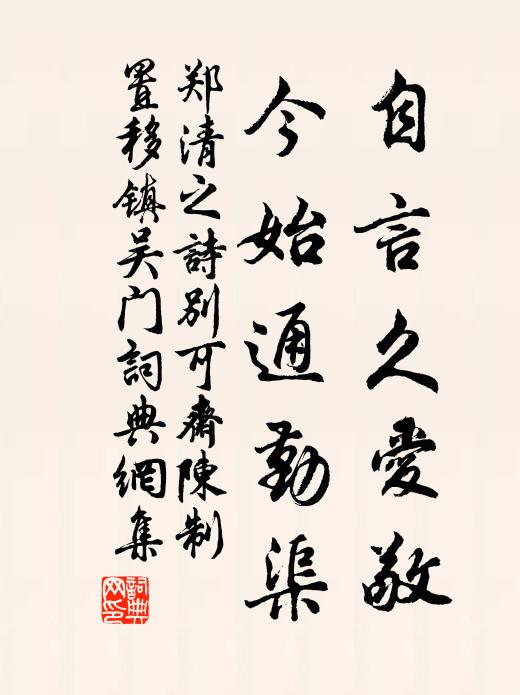 自言久愛敬
今始通勤渠
郑清之詩別可齋陳制
置移鎮吴门詞典網集
詞典网印